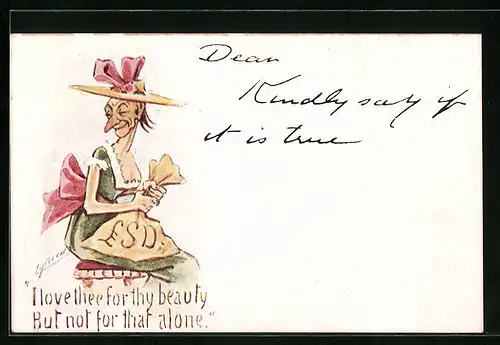 Dear
Kindly say if
it is true
£SD.
"I love thee for thy beauty
But not for that alone."